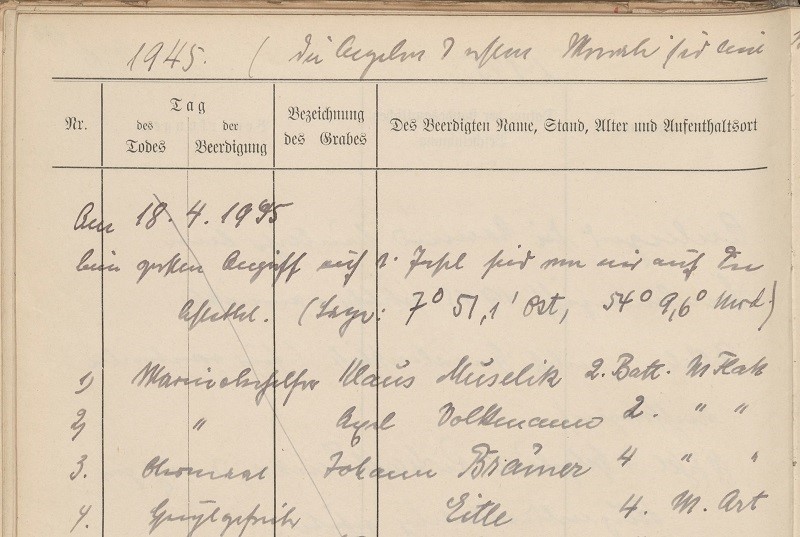 1945. (Die Angaben d. ersten Monate sind eine
Tag
Nr. des Todes der Beerdigung Bezeichnung des Grabes Des Beerdigten Name, Stand, Alter und Aufenthaltsort
Am 18. 4. 1945
beim großen Angriff auf d. Insel sind von mir auf See
(Lage: 7° 51,1' Ost, 54° 9,6° Nord.)
1) Marinehelfer Klaus Muselik 2. Batt. M Flak
2) " Axel Volkmann 2. " "
3. Johann Brämer 4 " "
4. Eitle 4. M. Art